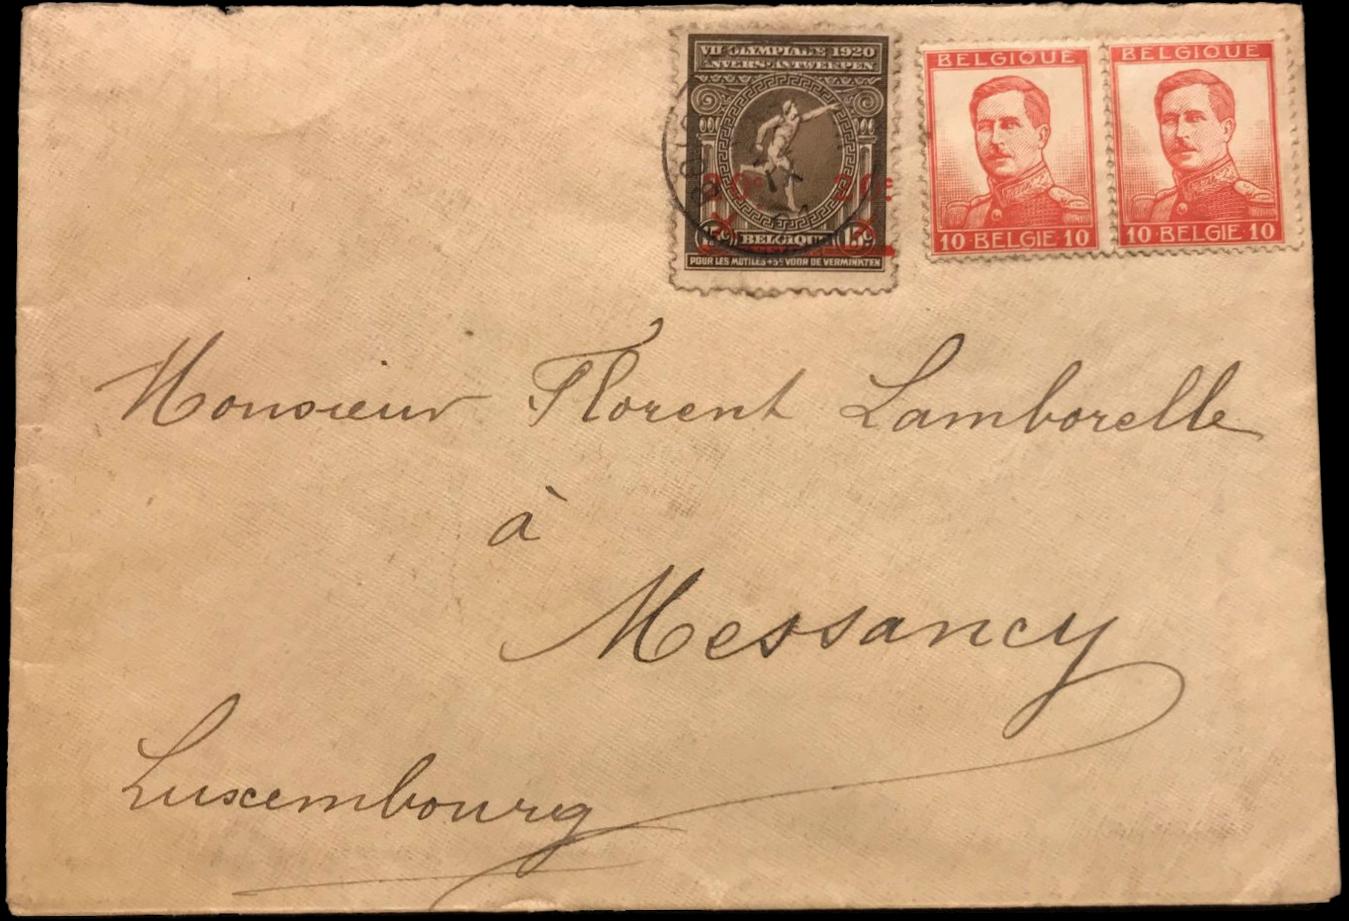 VII OLYMPIADE 1920
ANVERS-ANTWERPEN
20c 20c
15c BELGIQUE 15c
POUR LES MUTILES+5c VOOR DE VERMINKTEN
BELGIQUE
10 BELGIE 10
BELGIQUE
10 BELGIE 10
Monsieur Florent Lamborelle
à
Messancy
Luxembourg